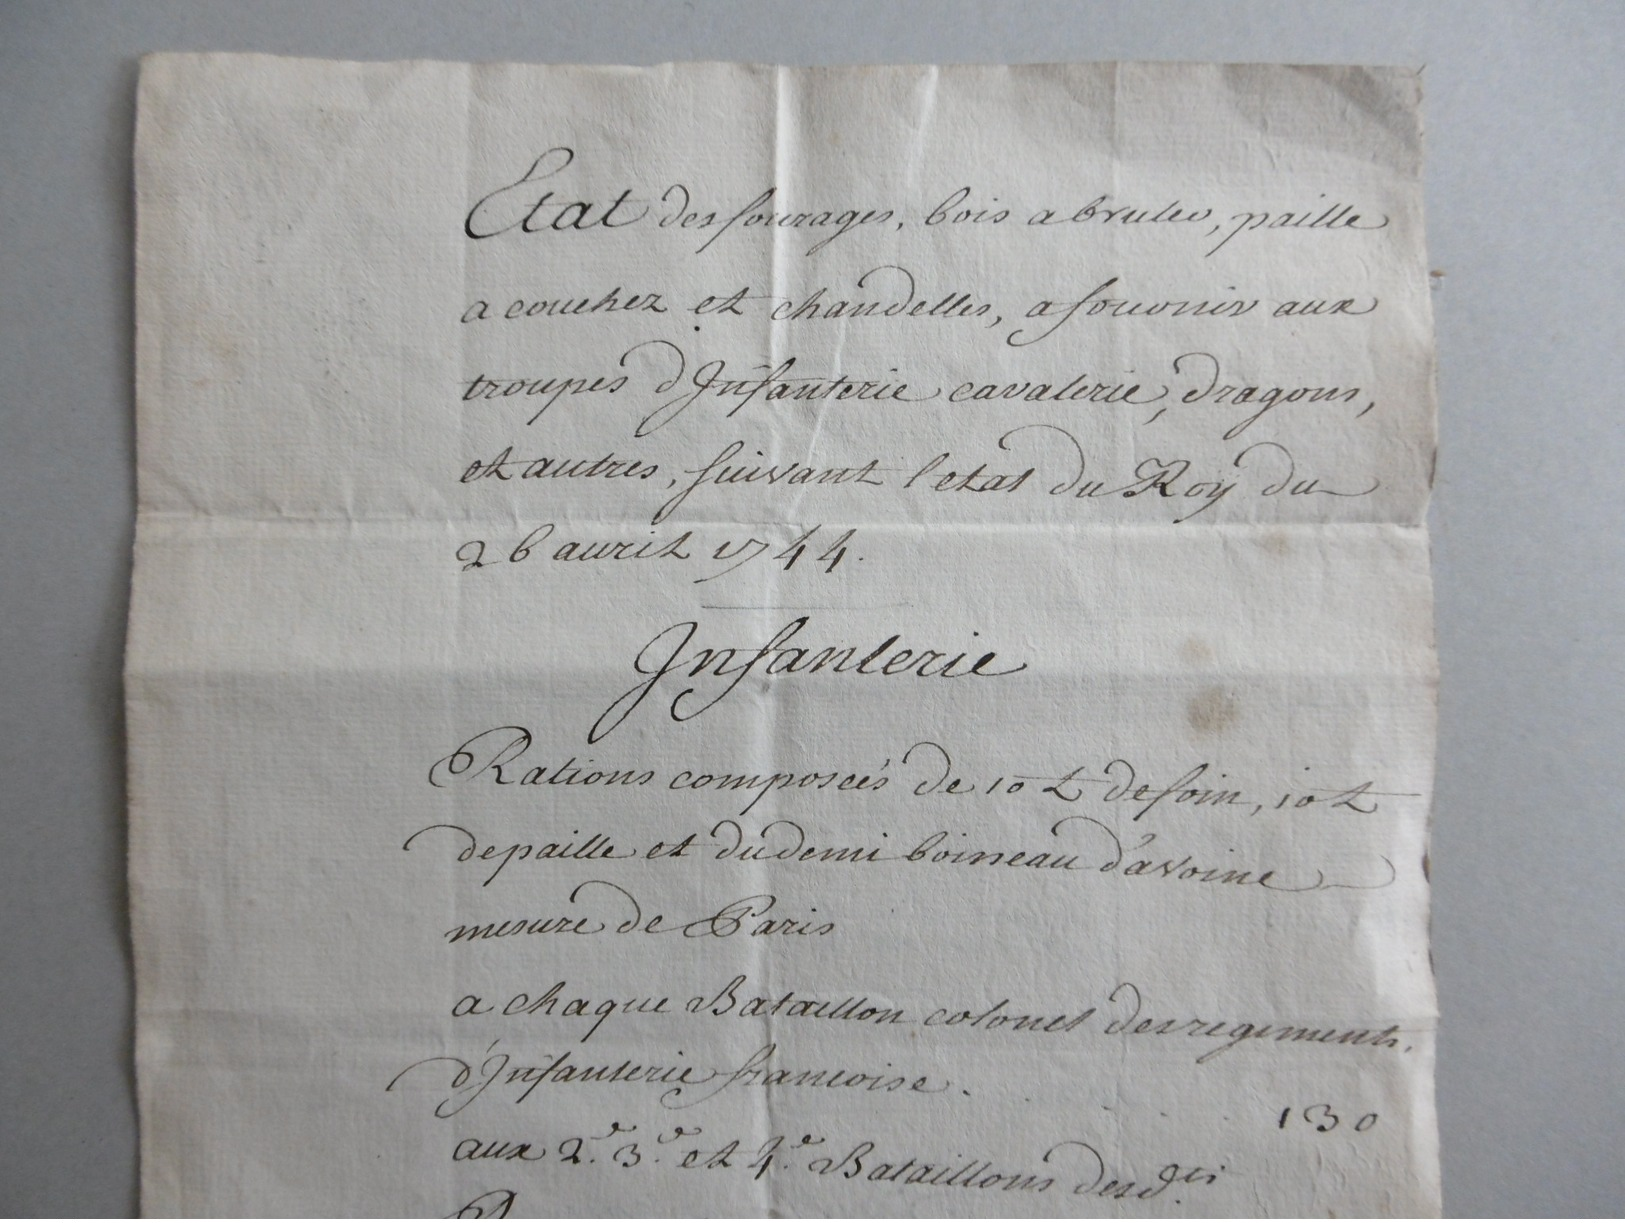 Etat des fourages, bois a bruler, paille
a couchez et chandelles, a fournir aux
troupes d'Infanterie cavalerie, dragons,
et autres, suivant l'etat du Roy du
26 avril 1744.
Infanterie
Rations composeés de 10 ℔ de foin, 10 ℔
de paille et du demi boisseau d'avoine
mesure de Paris
a chaque Bataillon colonel des regiments.
d'Infanterie francoise . . . . . 130
aux 2.e 3.e et 4.e Bataillons desd.ts